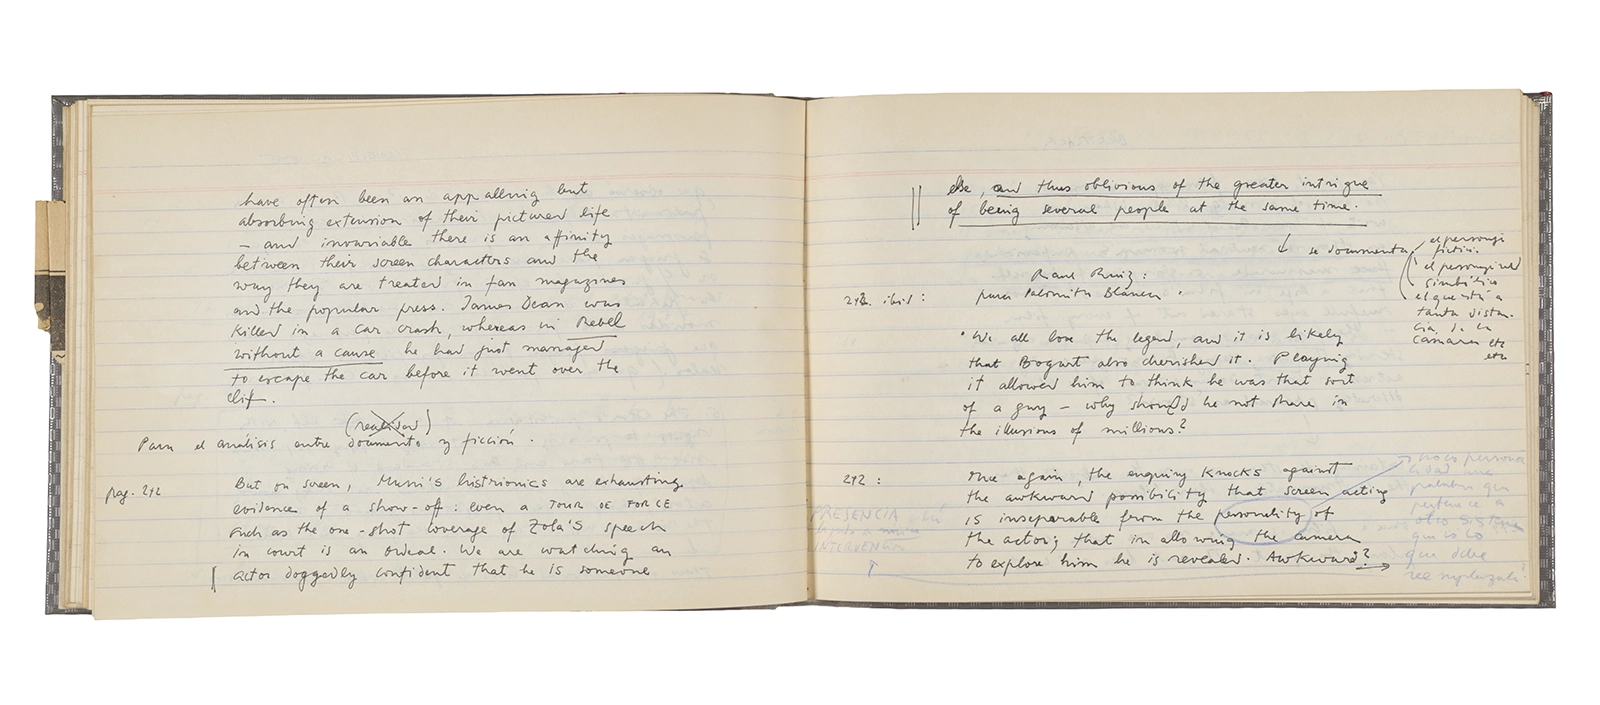 have often been an appalling but
absorbing extension of their pictured life
– and invariable there is an affinity
between their screen characters and the
way they are treated in fan magazines
and the popular press. James Dean was
killed in a car crash, whereas in Rebel
without a cause he had just managed
to escape the car before it went over the
clif.
(realidad)
Para el análisis entre documento y ficción.
pag. 242
But on screen, Muni's histrionics are exhausting
evidence of a show-off: even a TOUR DE FORCE
such as the one-shot coverage of Zola's speech
in court is an ordeal. We are watching an
actor doggedly confident that he is someone
else, and thus oblivious of the greater intrigue
of being several people at the same time.
↓ se documenta
el personaje
fictici.
el personaje
simbólico
el que está a
tanta distan-
cia, de la
cámara etc
etc
Raul Ruiz:
242 ibid: para Palomita Blanca.
"We all love the legend, and it is likely
that Bogart also cherished it. Playing
it allowed him to think he was that sort
of a guy – why should he not share in
the illusions of millions?
242:
Once again, the enquiry knocks against
the awkward possibility that screen acting
is inseparable from the personality of
the actor; that in allowing the camera
to explore him he is revealed. Awkward? →
no es persona
lidad una
palabra que
pertenece a
otro sistema
que es lo
que debe
PRESENCIA
INTERVENCIÓN